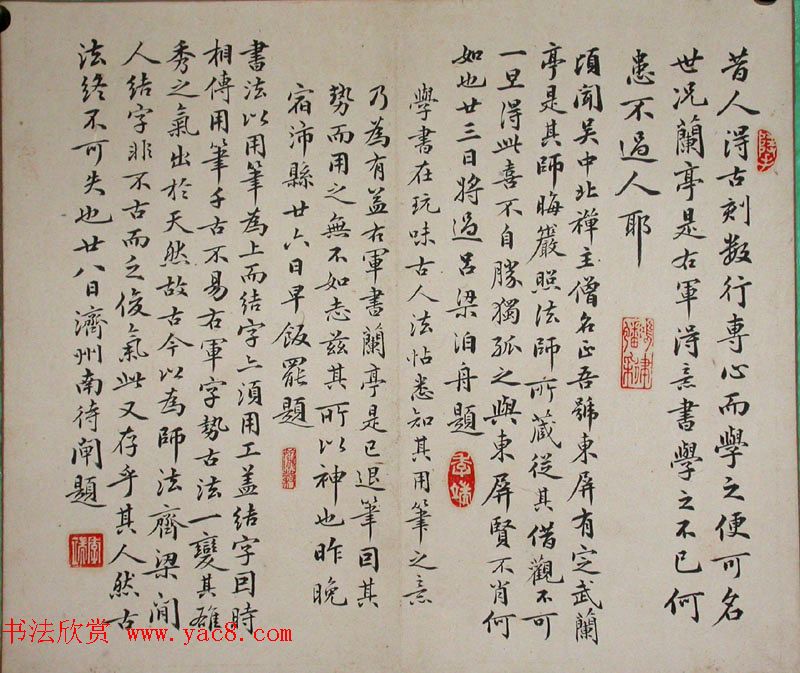 昔人得古刻数行專心而學之便可名
世况蘭亭是右軍得意書學之不已何
患不過人耶
頃聞吴中北禪主僧名正吾號東屏有定武蘭
亭是其師晦巖照法師所藏從其借觀不可
一旦得此喜不自勝獨孤之與東屏賢不肖何
如也廿三日將過呂梁泊舟題
學書在玩味古人法帖悉知其用筆之意
乃為有益右軍書蘭亭是已退筆因其
勢而用之無不如志兹其所以神也昨晚
宿沛縣廿六日早飯罷題
書法以用筆為上而結字亦須用工盖結字因時
相傳用筆千古不易右軍字勢古法一變其雄
秀之氣出於天然故古今以為師法齊梁間
人結字非不古而乏俊氣此又存乎其人然古
法終不可失也廿八日濟州南待閘題
书法欣赏 www.yac8.com